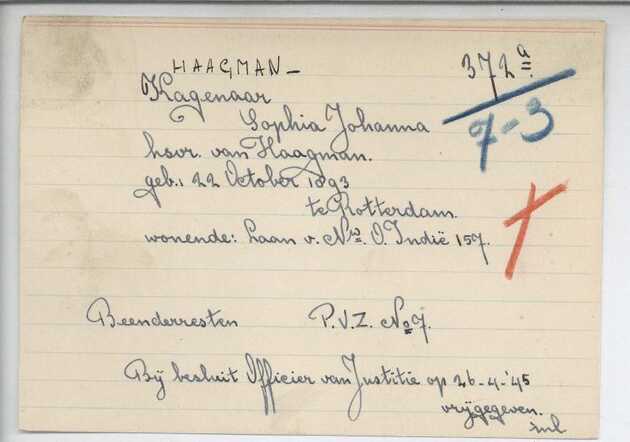 HAAGMAN - 372a
Kagenaar 7-3
Sophia Johanna
hsvr. van Haagman.
geb.: 22 October 1893
te Rotterdam.
wonende: Laan v. Nw. O. Indië 157.
Beenderresten P.V.Z. No 7.
Bij besluit Officier van Justitie op 26-4-'45
vrijgegeven.